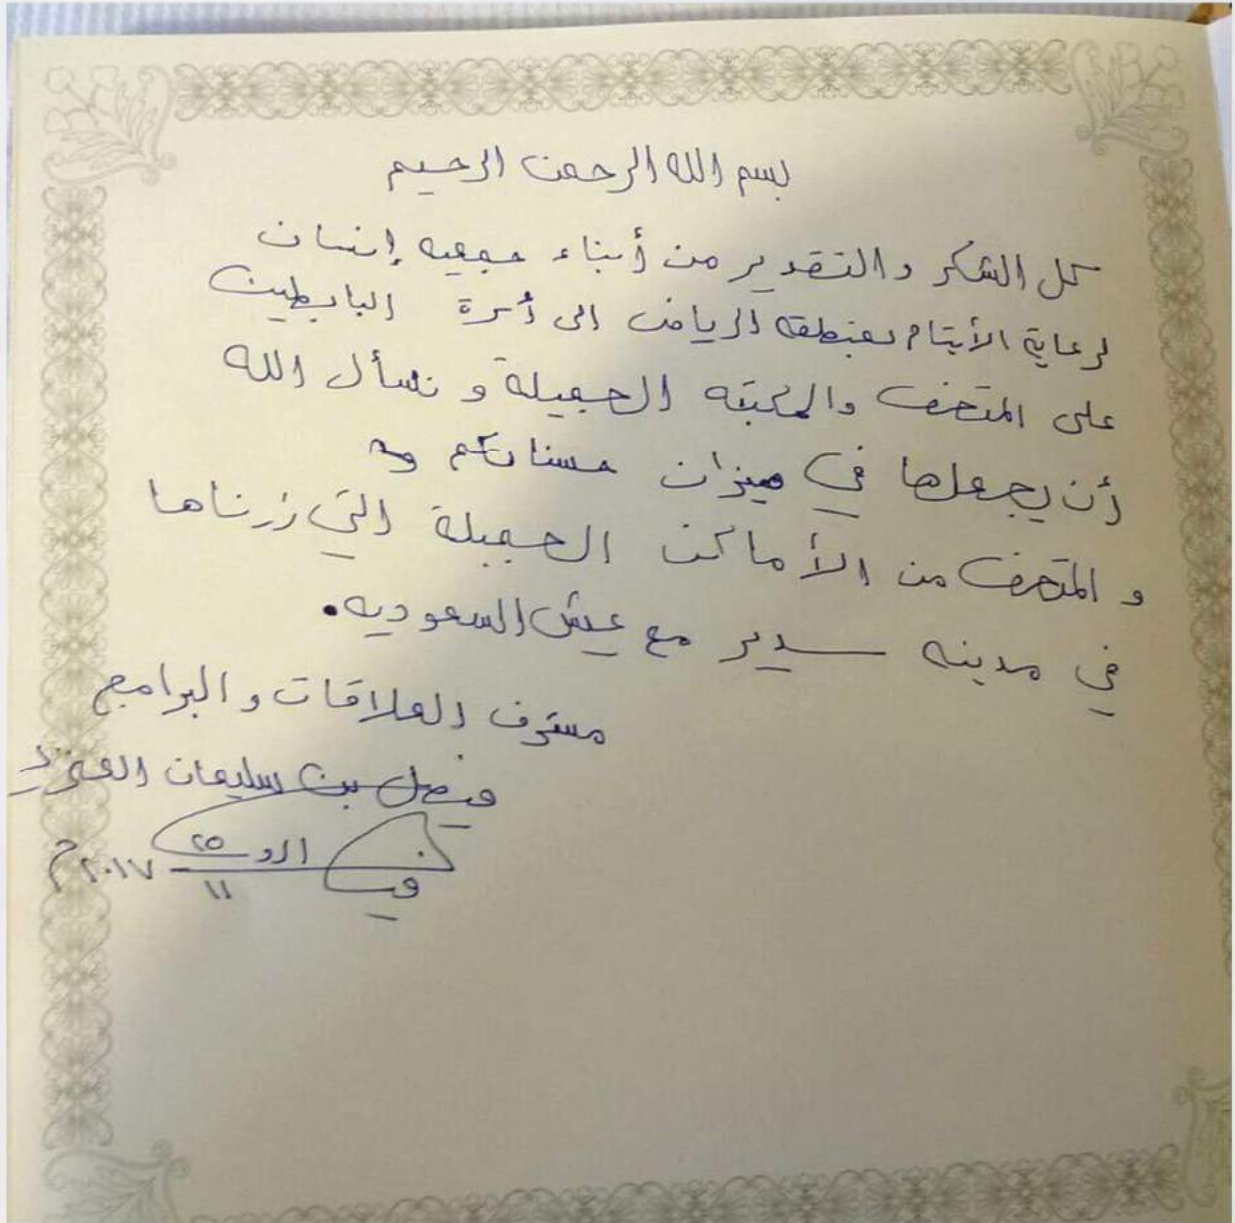 بسم الله الرحمن الرحيم
كل الشكر والتقدير من أبناء جمعيه إنسان
لرعاية الأيتام بمنطقه الرياض الى أسرة البابطين
على المتحف والمكتبه الجميلة و نسأل الله
أن يجعلها في ميزان حسناتكم
و المتحف من الأماكن الجميلة التي زرناها
في مدينه سدير مع عيش السعوديه.
مشرف العلاقات والبرامج
فيصل بن سليمان العنزي
٢٥
١١
٢٠١٧م